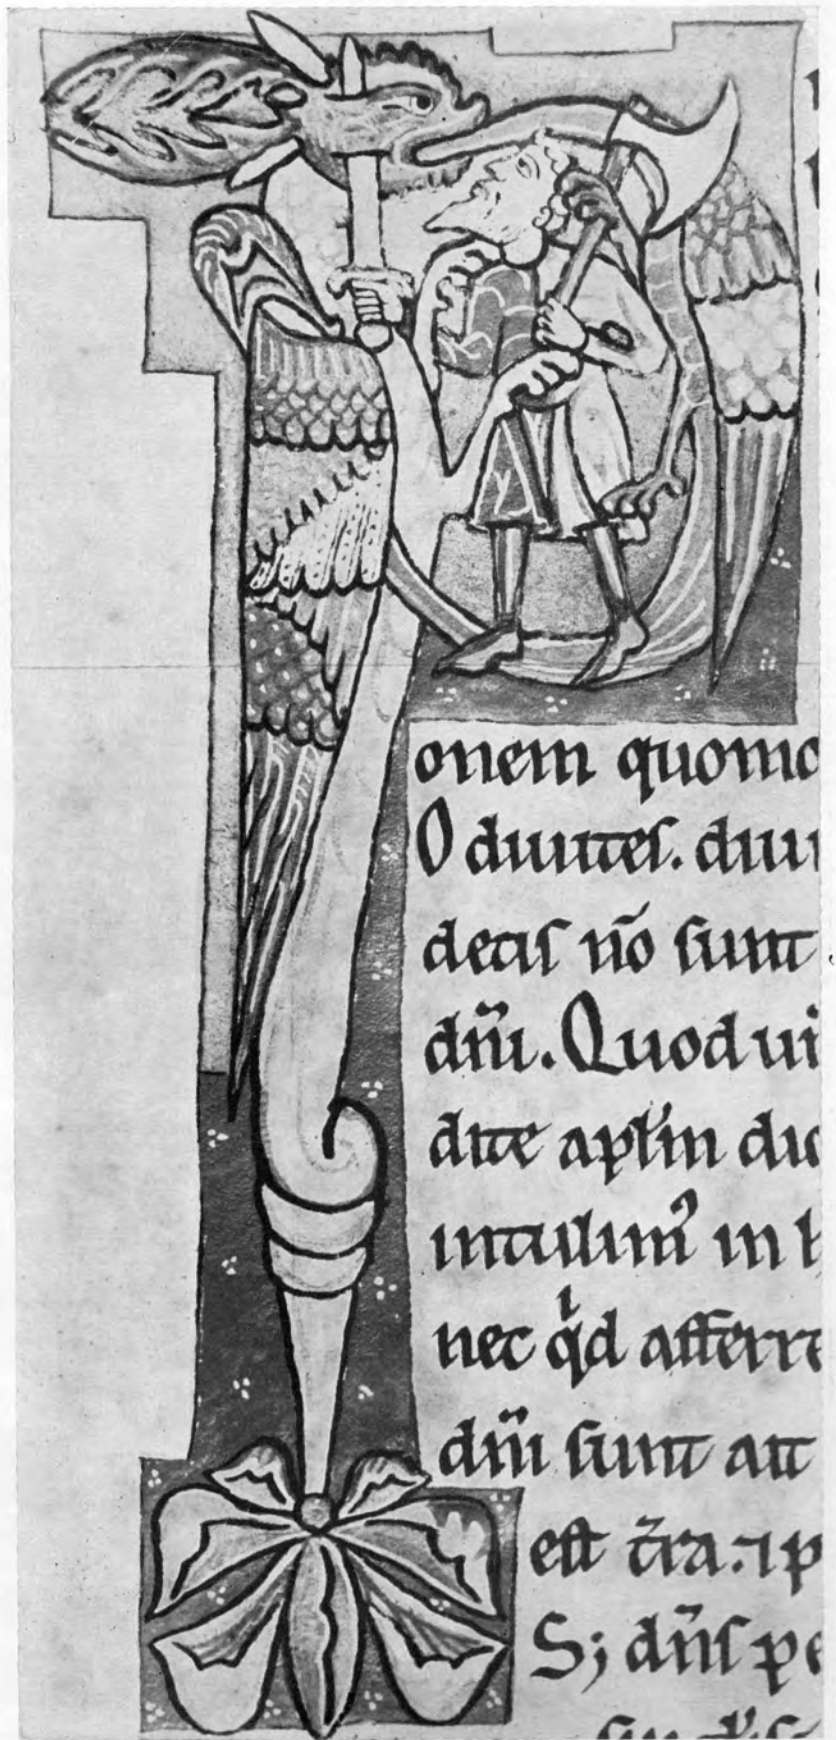 onem quomo
O diuites. diui
deas nō sunt
dn̄i. Quod ui
dite apl̄m dic
intulim᷒ in h
nec qͥd afferre
dn̄i sunt att
est t̄ra. ⁊ p
S; dn̄s pe